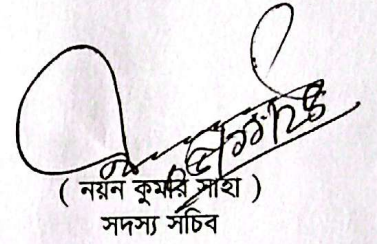 ( নয়ন কুমরি সাহা )
সদস্য সচিব